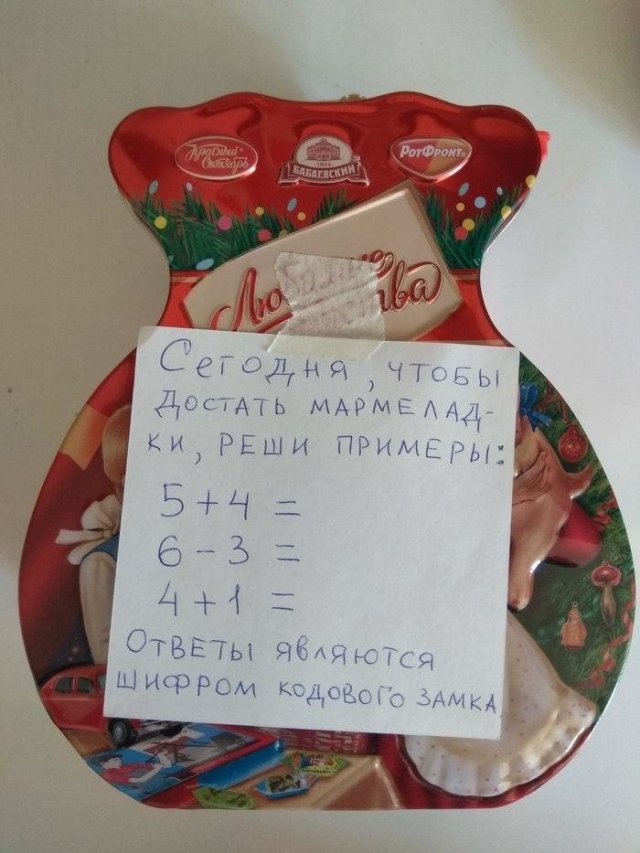 Красный
Октябрь
1804
БАБАЕВСКИЙ
РотФронт
Сегодня, чтобы
достать мармелад-
ки, реши примеры:
5+4 =
6-3 =
4+1 =
Ответы являются
шифром кодового замка